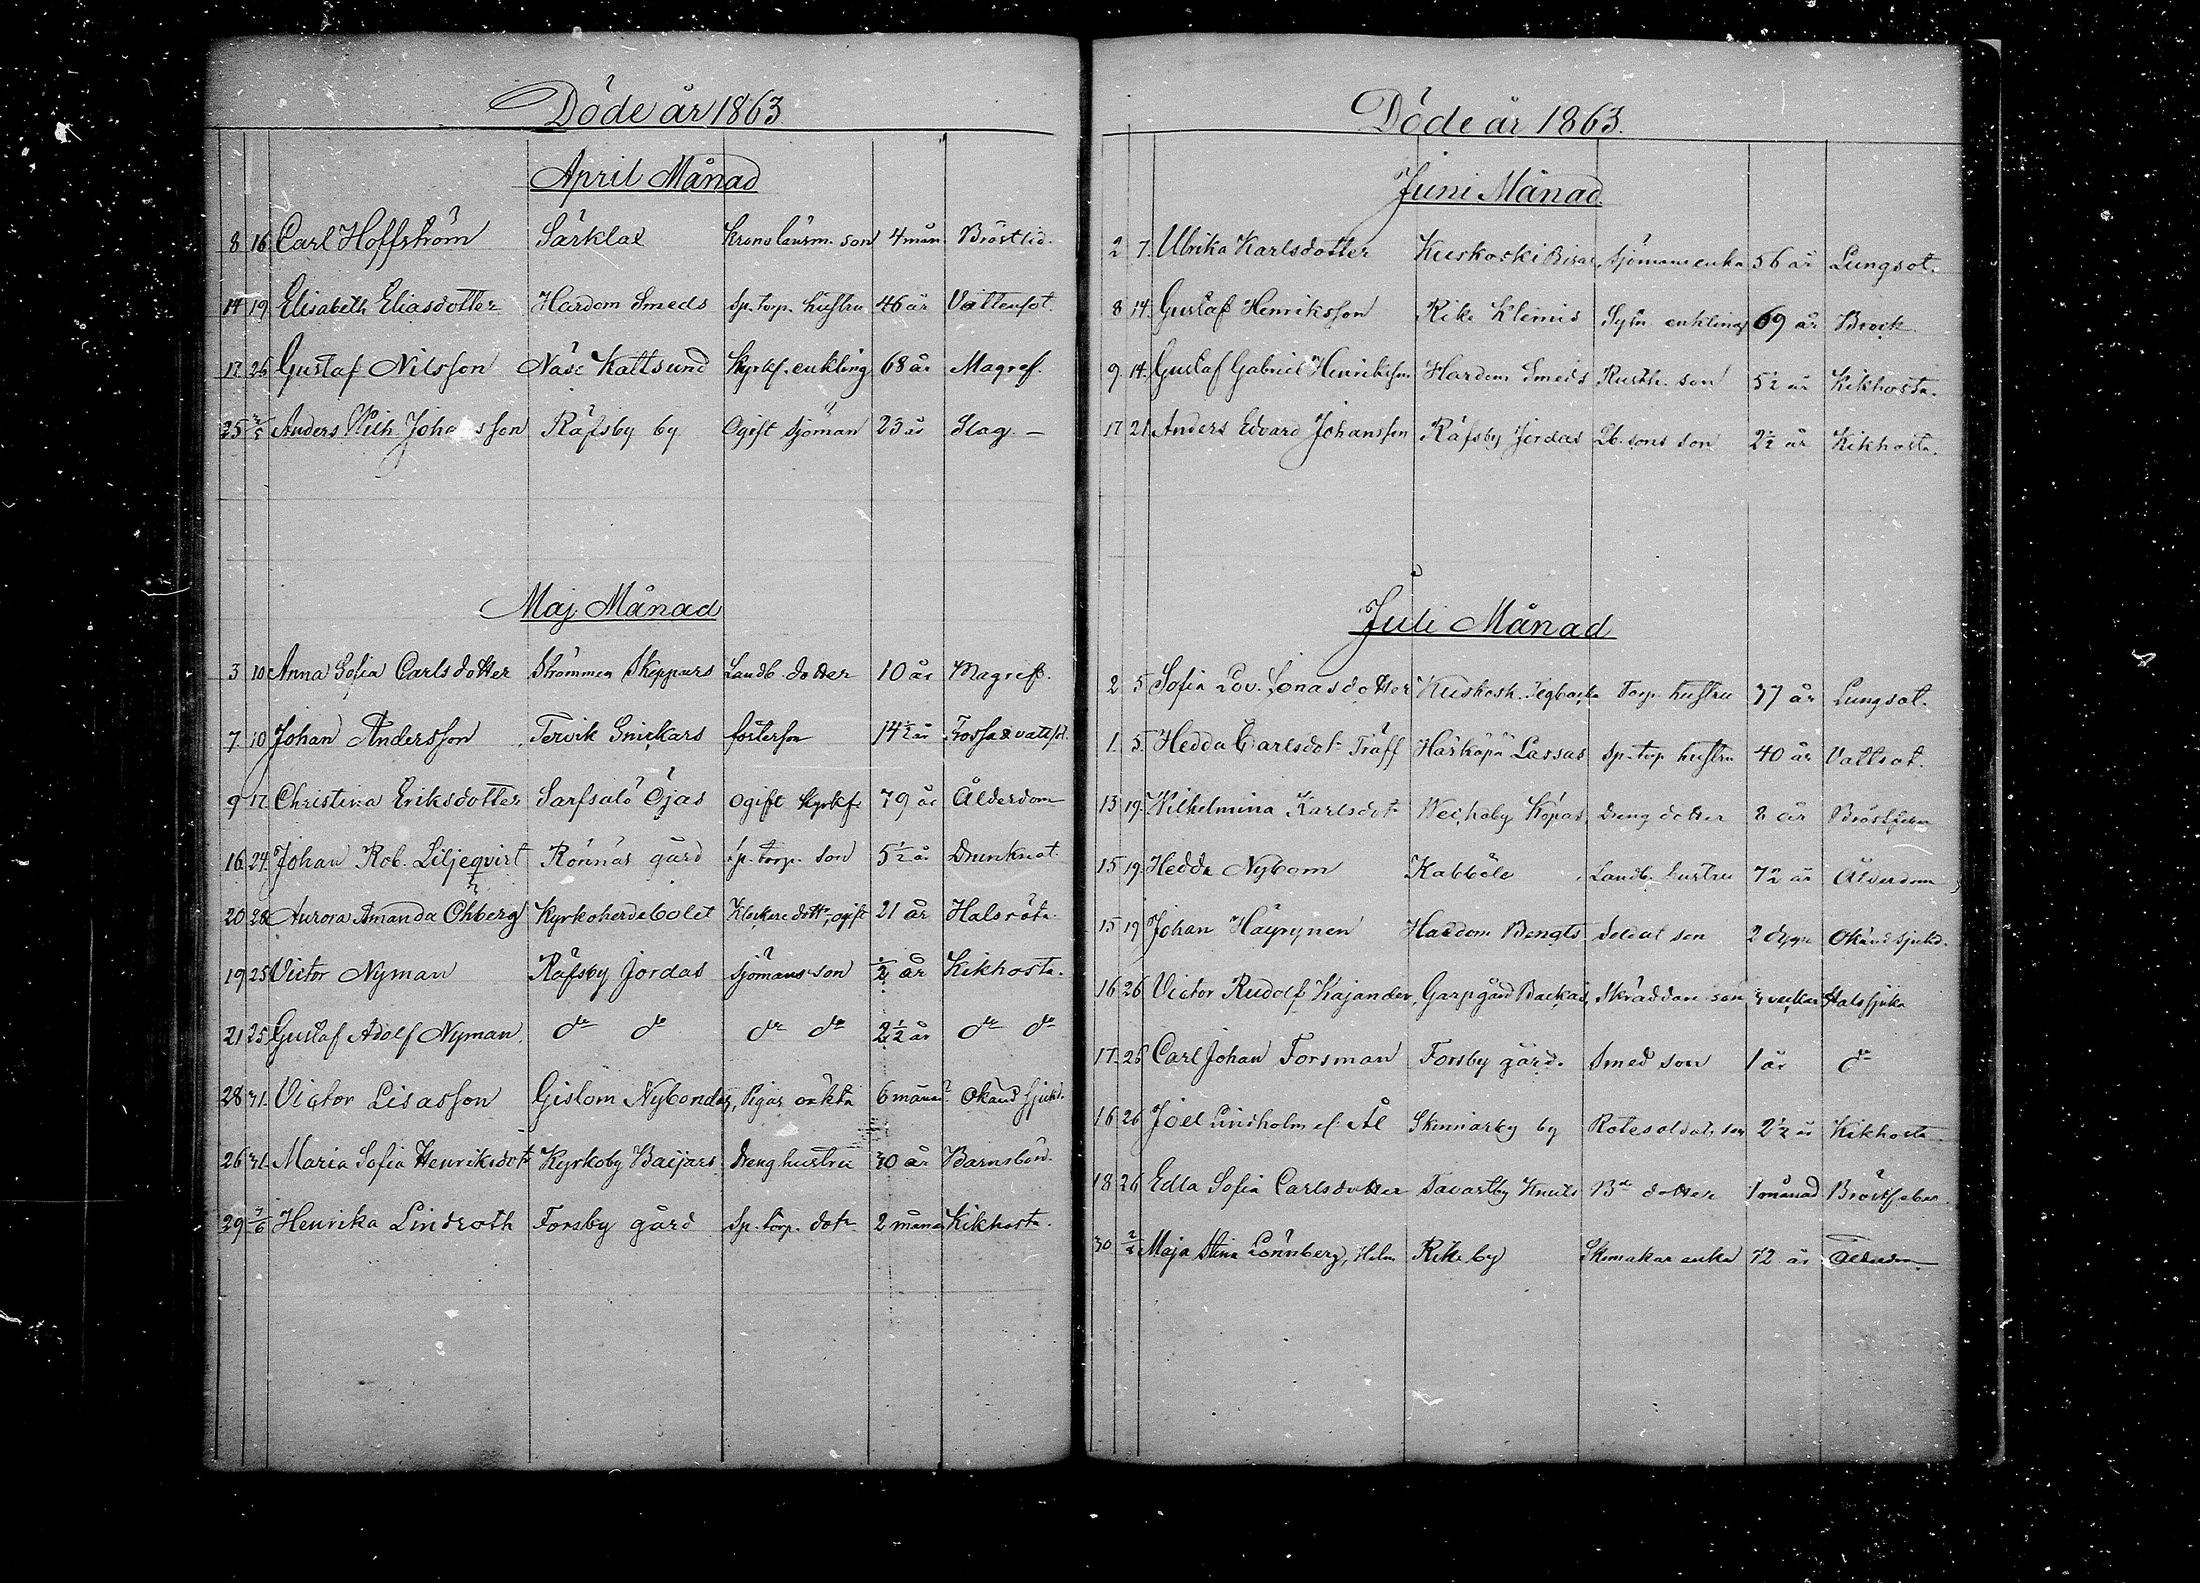 Döde år 1863
April Månad
8 16 Carl Hoffström Särklax Kronolänsm. son 4 mån Bröstlid.
14 19 Elisabeth Eliasdotter Hardom Smeds Sp. torp. hustru 46 år Vattensot.
17 26 Gustaf Nilsson Näse Kattsund Kyrkf. enkling 68 år Magref.
25 3/5 Anders Wilh Johansson Räfsby by Ogift sjöman 23 år Slag. —
Maj Månad
3 10 Anna Sofia Carlsdotter Strömmen Skeppars Landb. dotter 10 år Magref.
7 10 Johan Andersson Tervik Snickars fosterson 14 1/2 år Frossa & vattsot.
9 17 Christina Eriksdotter Sarfsalö Öjas Ogift kyrkf. 79 år Ålderdom
16 24 Johan Rob. Liljeqvist Rönnäs gård sp. torp. son 5 1/2 år Drunknat.
20 28 Aurora Amanda Öhberg Kyrkoherdebolet Klockare dottr, ogift 21 år Halsröta.
19 25 Victor Nyman Räfsby Jordas sjömans son 1/2 år Kikhosta.
21 25 Gustaf Adolf Nyman. do do do do 2 1/2 år do do
28 31. Victor Lisasson Gislom Nybondas, Pigas oäkta 6 månad. Okänd sjukd.
26 31. Maria Sofia Henriksdotr Kyrkoby Baijars Dreng hustru 30 år Barnsbörd.
29 7/6 Henrika Lindroth Forsby gård Sp. torp. dotr 2 månad Kikhosta.
Döde år 1863.
Juni Månad
2 7. Ulrika Karlsdotter Kuskoski sjömans enka 56 år Lungsot.
8 14. Gustaf Henriksson Rike Klemis Sytn. enkling 69 år Bråck.
9 14. Gustaf Gabriel Henriksson Hardom Smeds Rusth. son 5 1/2 år Kikhosta.
17 21 Anders Edvard Johansson Räfsby Jordas Lb. sons son 2 1/2 år Kikhosta.
Juli Månad
2 5 Sofia Lov. Jonasdotter Kuskosk. Tegbacka Torp. hustru 37 år Lungsot.
1. 5. Hedda Carlsdotr Träff Härköpä Lassas sp. torp. hustru 40 år Vattsot.
13 19. Wilhelmina Karlsdotr Weckoby Köpas, Dreng dotter 8 år Bröstfeber
15 19. Hedda Nybom Kabböle Landb. hustru 72 år Ålderdom
15 19 Johan Häyrynen Hardom Bengts Soldat son 2 dygn Okänd sjukd.
16 26 Victor Rudolf Kajander, Garpgård Backas, Skräddare son 3 veckor Halssjuka
17. 26 Carl Johan Forsman Forsby gård. Smed son 1 år do
16 26 Joel Lindholm el. Ål Skinnarby by Rotesoldats son 2 1/2 år Kikhosta
18 26 Edla Sofia Carlsdotter Tavastby Knuts Bde dotter 1 månad Bröstfeber.
30 2/8 Maja Stina Lönnberg, Holm Rike by Skomakar enka 72 år Ålderdom.